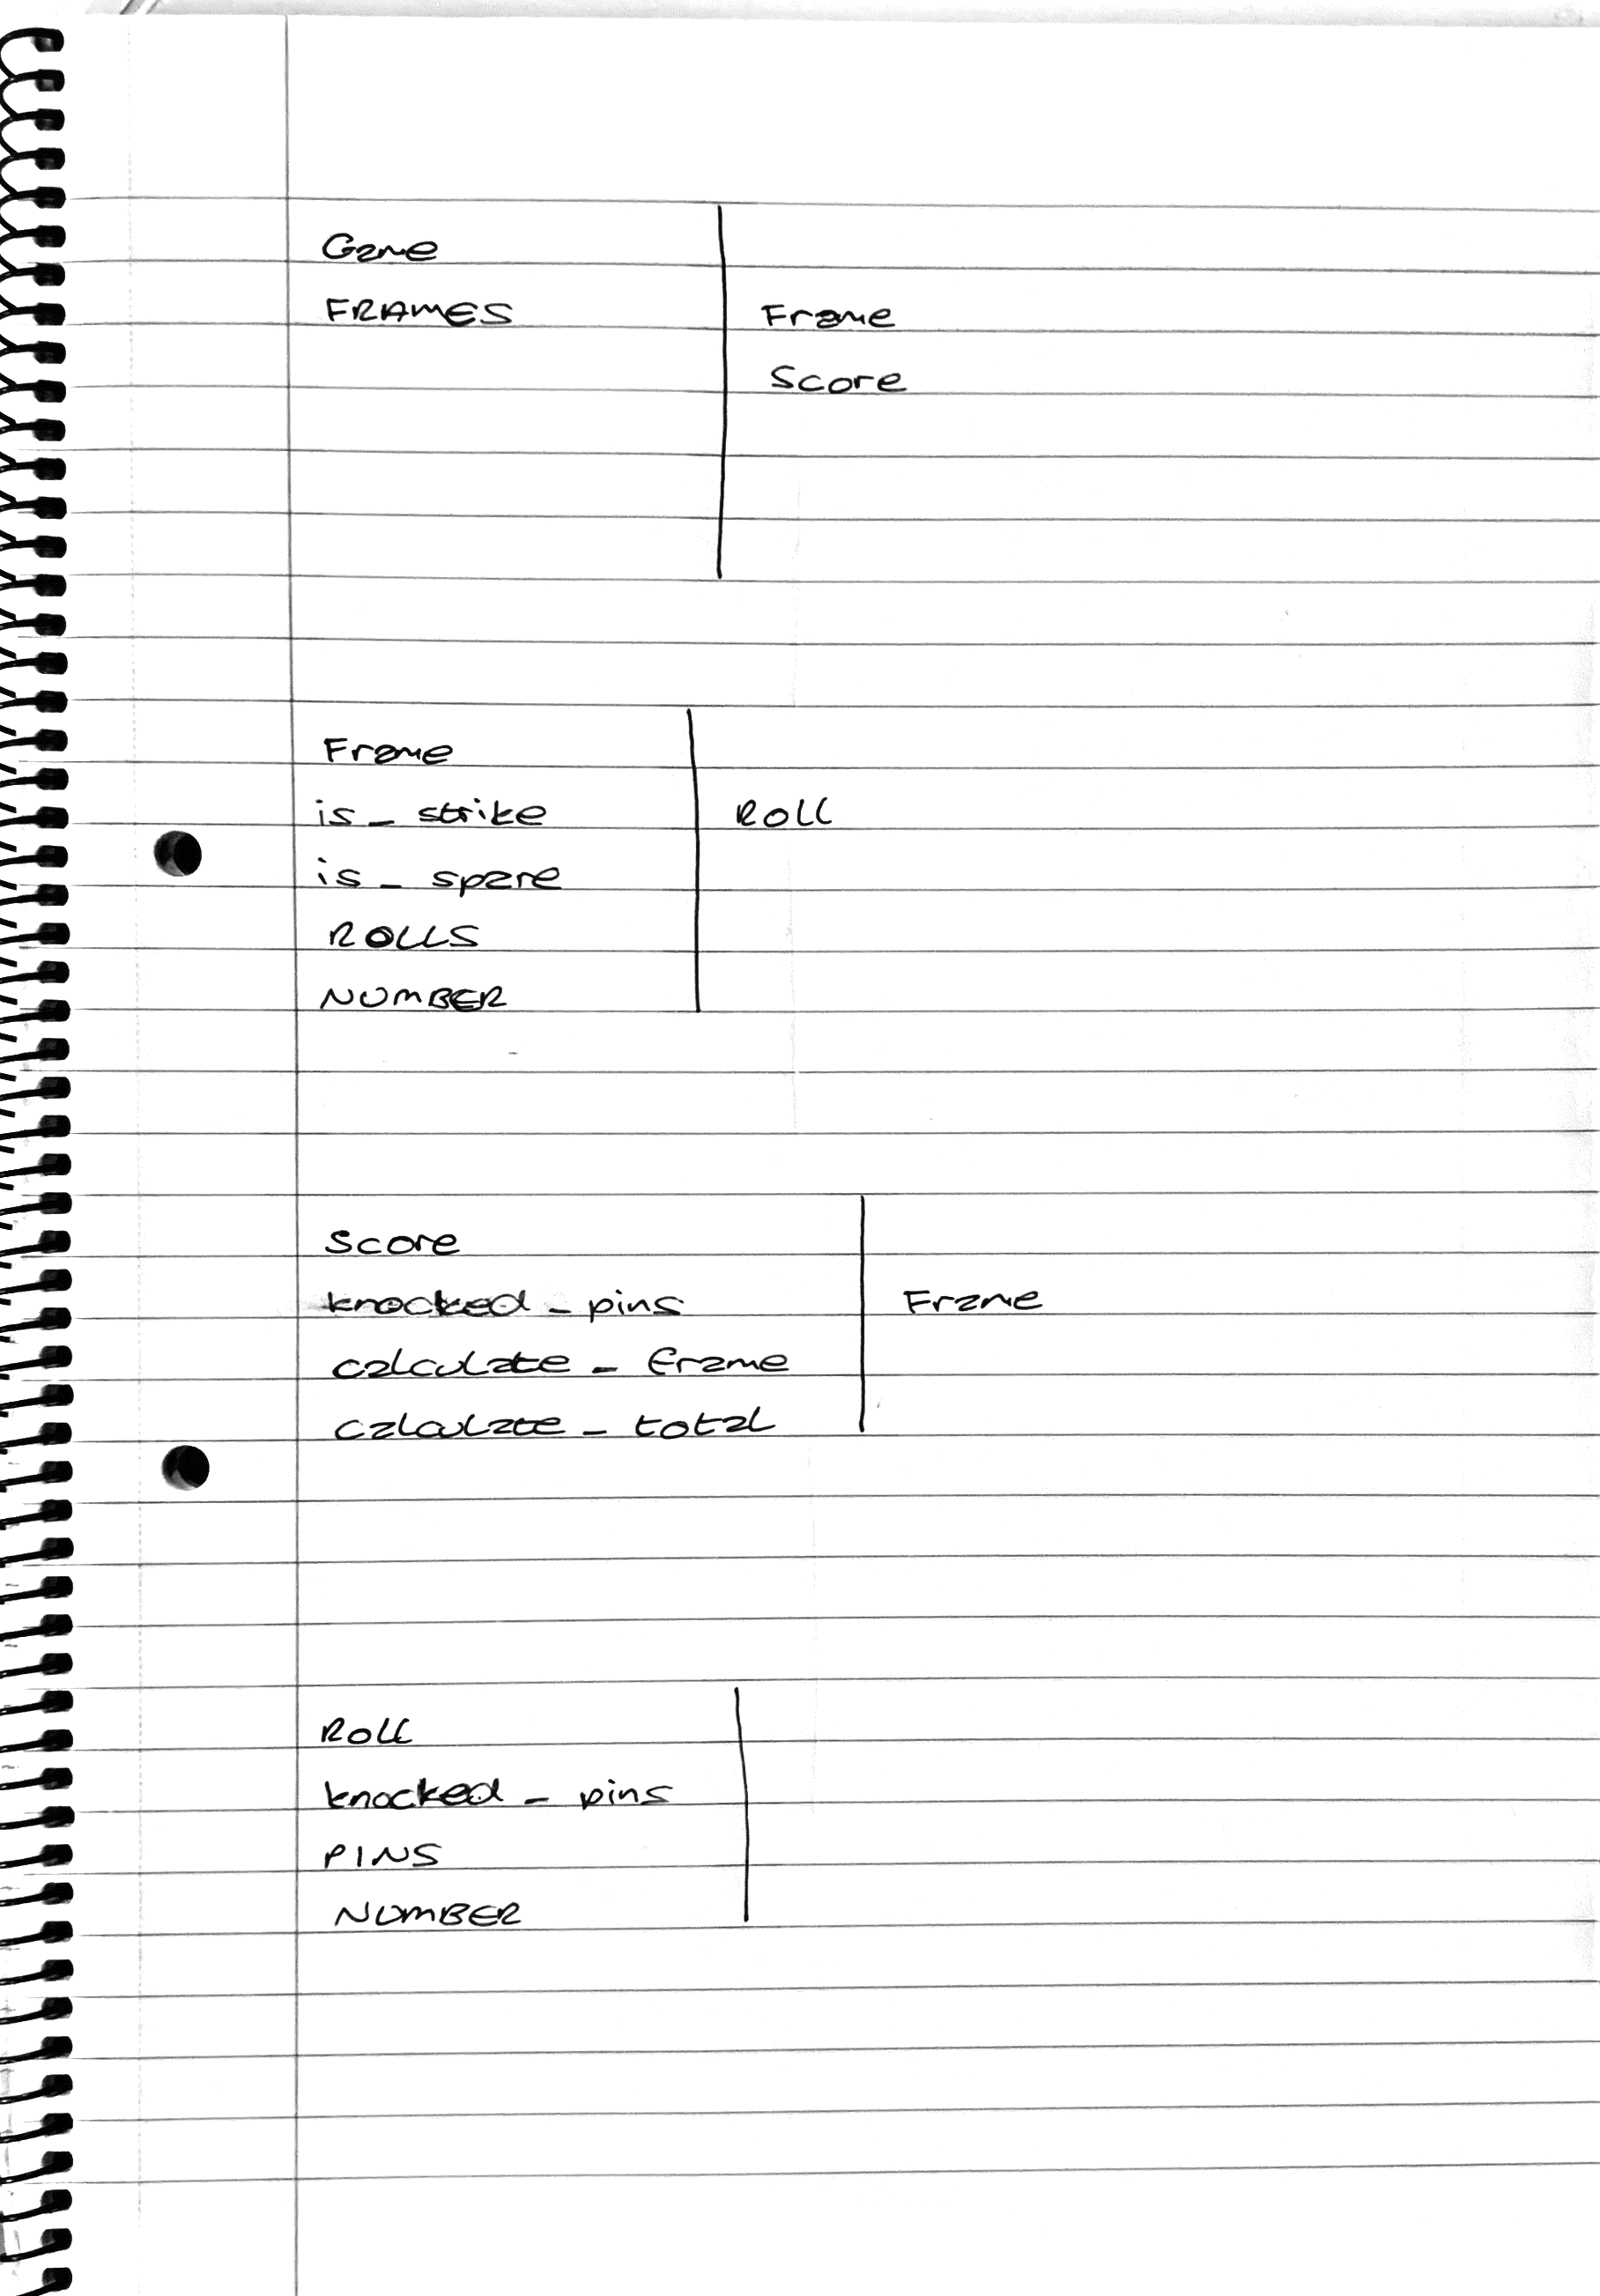 Game
FRAMES Frame
Score
Frame
is_strike Roll
is_spare
ROLLS
NUMBER
Score
knocked_pins Frame
calculate_frame
calculate_total
Roll
knocked_pins
PINS
NUMBER